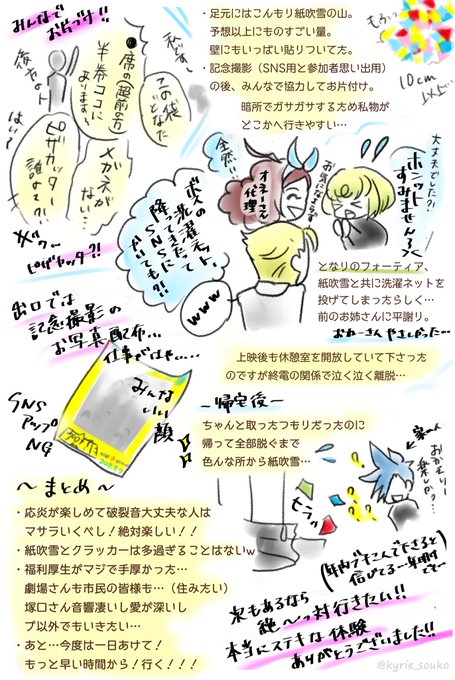 みんなで
お片づけ!!
・足元にはこんもり紙吹雪の山。
予想以上にものすごい量。
壁にもいっぱい貼りついてた。
・記念撮影(SNS用と参加者思い出用)
の後、みんなで協力してお片付け。
暗所でガサガサするため私物が
どこかへ行きやすい…
もろっ
10cm
以上…
私です〜
この袋
どなた
●席の(超前方)
半券ココに
ありまーす
メガネが
ない…
ピザカッター
誰よて?!
はい?
ピザカッター?!
全然〜
オネーさん
代理
大丈夫でした?!
ホンット
すみませんろく
ボスの
洗濯ネット
降ってきたって
SNSに
かいても?!
www
となりのフォーティア、
紙吹雪と共に洗濯ネットを
投げてしまったらしく…
前のお姉さんに平謝り。
おねーさんやさしかった…
出口では
記念撮影の
お写真配布…
仕事がはやい…
みんな
いい
顔
SNS
アップ
NG
上映後も休憩室を開放していて下さった
のですが終電の関係で泣く泣く離脱…
−帰宅後−
ちゃんと取ったつもりだったのに
帰って全部脱ぐまで
色んな所から紙吹雪…
家の人
おかえりー
楽しか…?
〜まとめ〜
・応炎が楽しめて破裂音大丈夫な人は
マサラいくべし!絶対楽しい!!
・紙吹雪とクラッカーは多過ぎることはないw
・福利厚生がマジで手厚かった…
劇場さんも市民の皆様も…(住みたい)
塚口さん音響凄いし愛が深いし
プ以外でもいきたい…
・あと…今度は一日あけて!
もっと早い時間から!行く!!!
次もあるなら
絶〜っ対行きたい!!
本当にステキな体験
ありがとうございました!!
@kyrie_souko